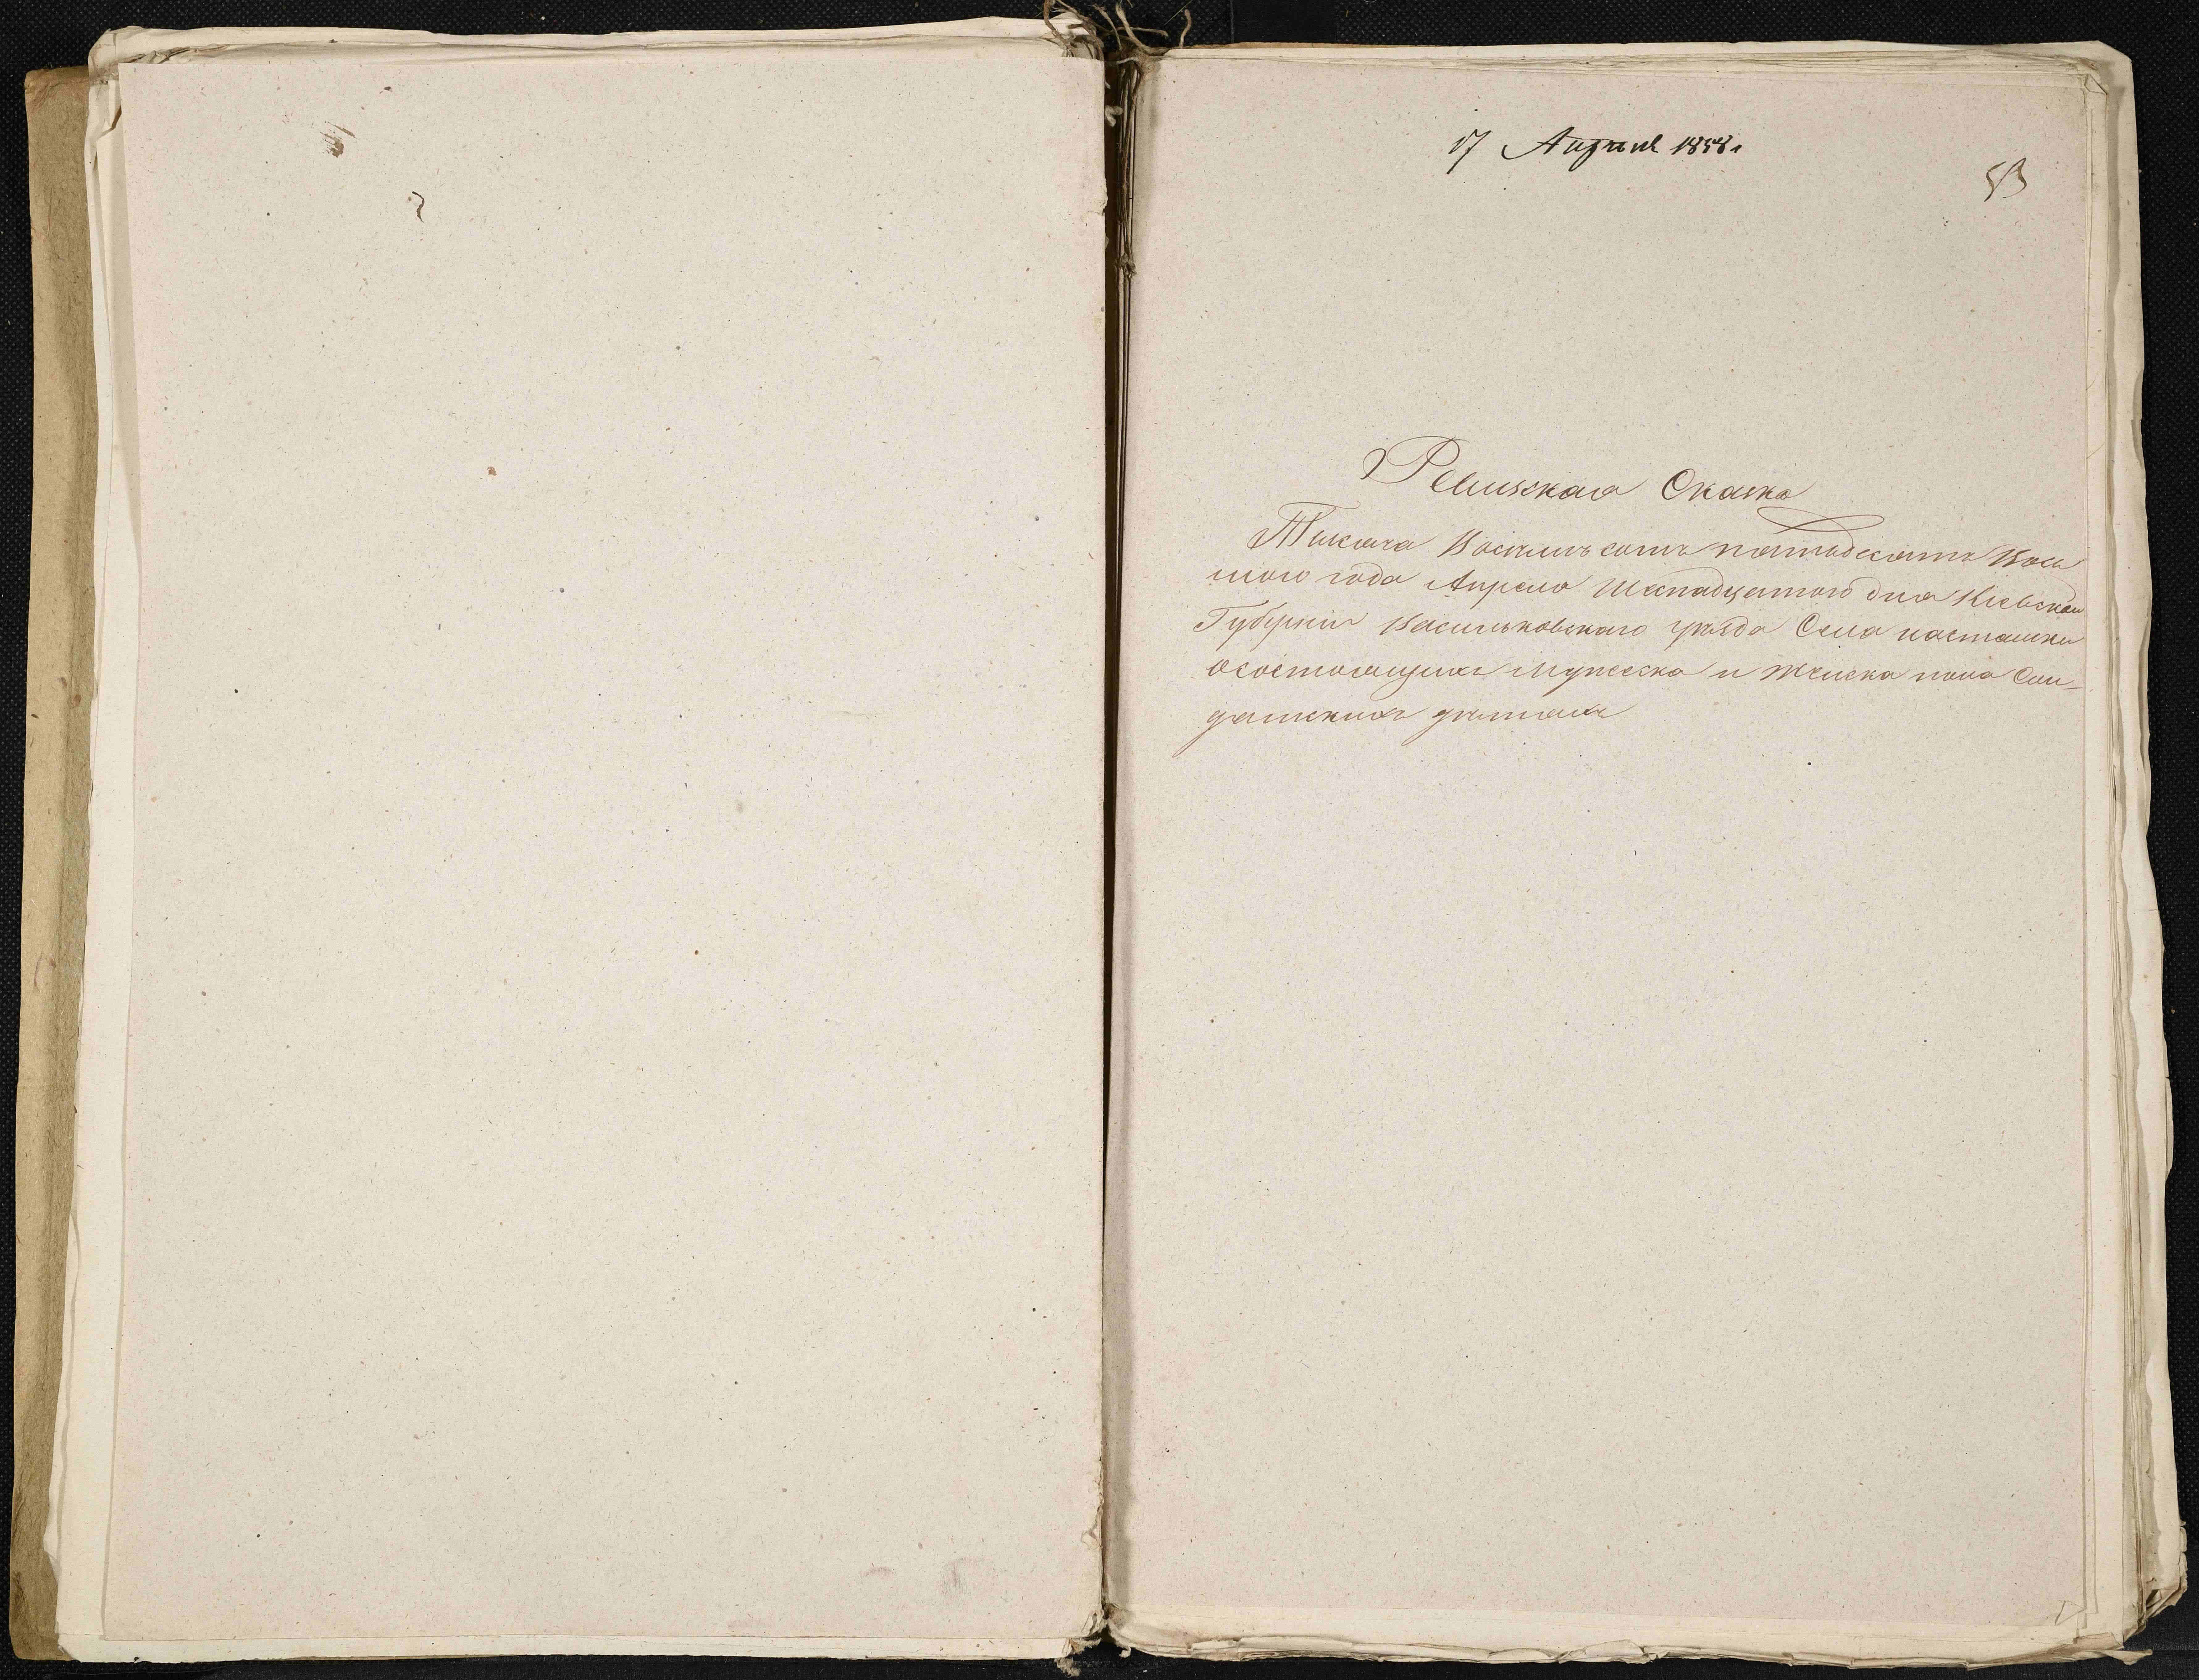 17 Апреля 1858 г
53
Ревизская Сказка
Тысяча Восемь сотъ пятьдесятъ Вось
мого года Апреля Шеснадцатого дня Киевской
Губернии Васильковского уезда Села насташки
Осостоящихъ мужеска и Женска пола Сол-
датскихъ детяхъ